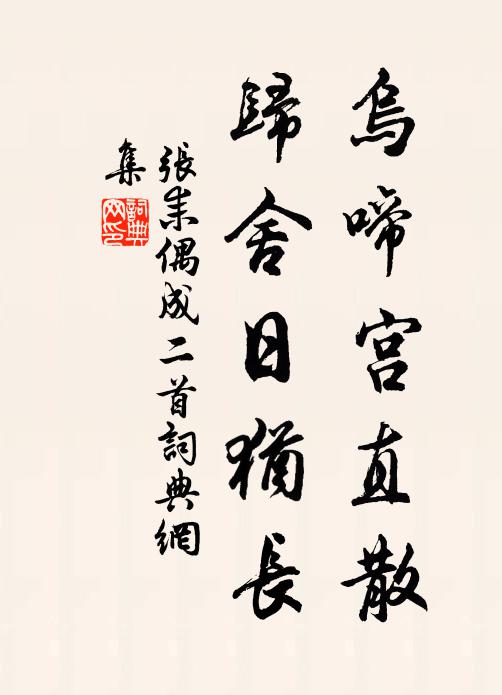 烏啼宮直散
歸舍日猶長
張耒偶成二首詞典網
集
詞典
网印